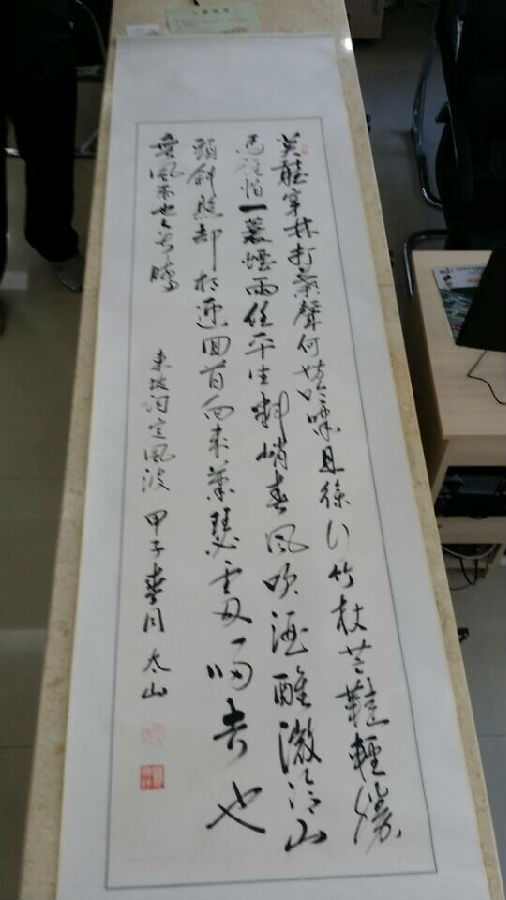 莫聽穿林打葉聲何妨吟嘯且徐行竹杖芒鞋輕勝
馬誰怕一蓑煙雨任平生料峭春風吹酒醒微冷山
頭斜照却相迎回首向來蕭瑟處歸去也
無風雨也無晴 東坡詞定風波 甲子春月 太山